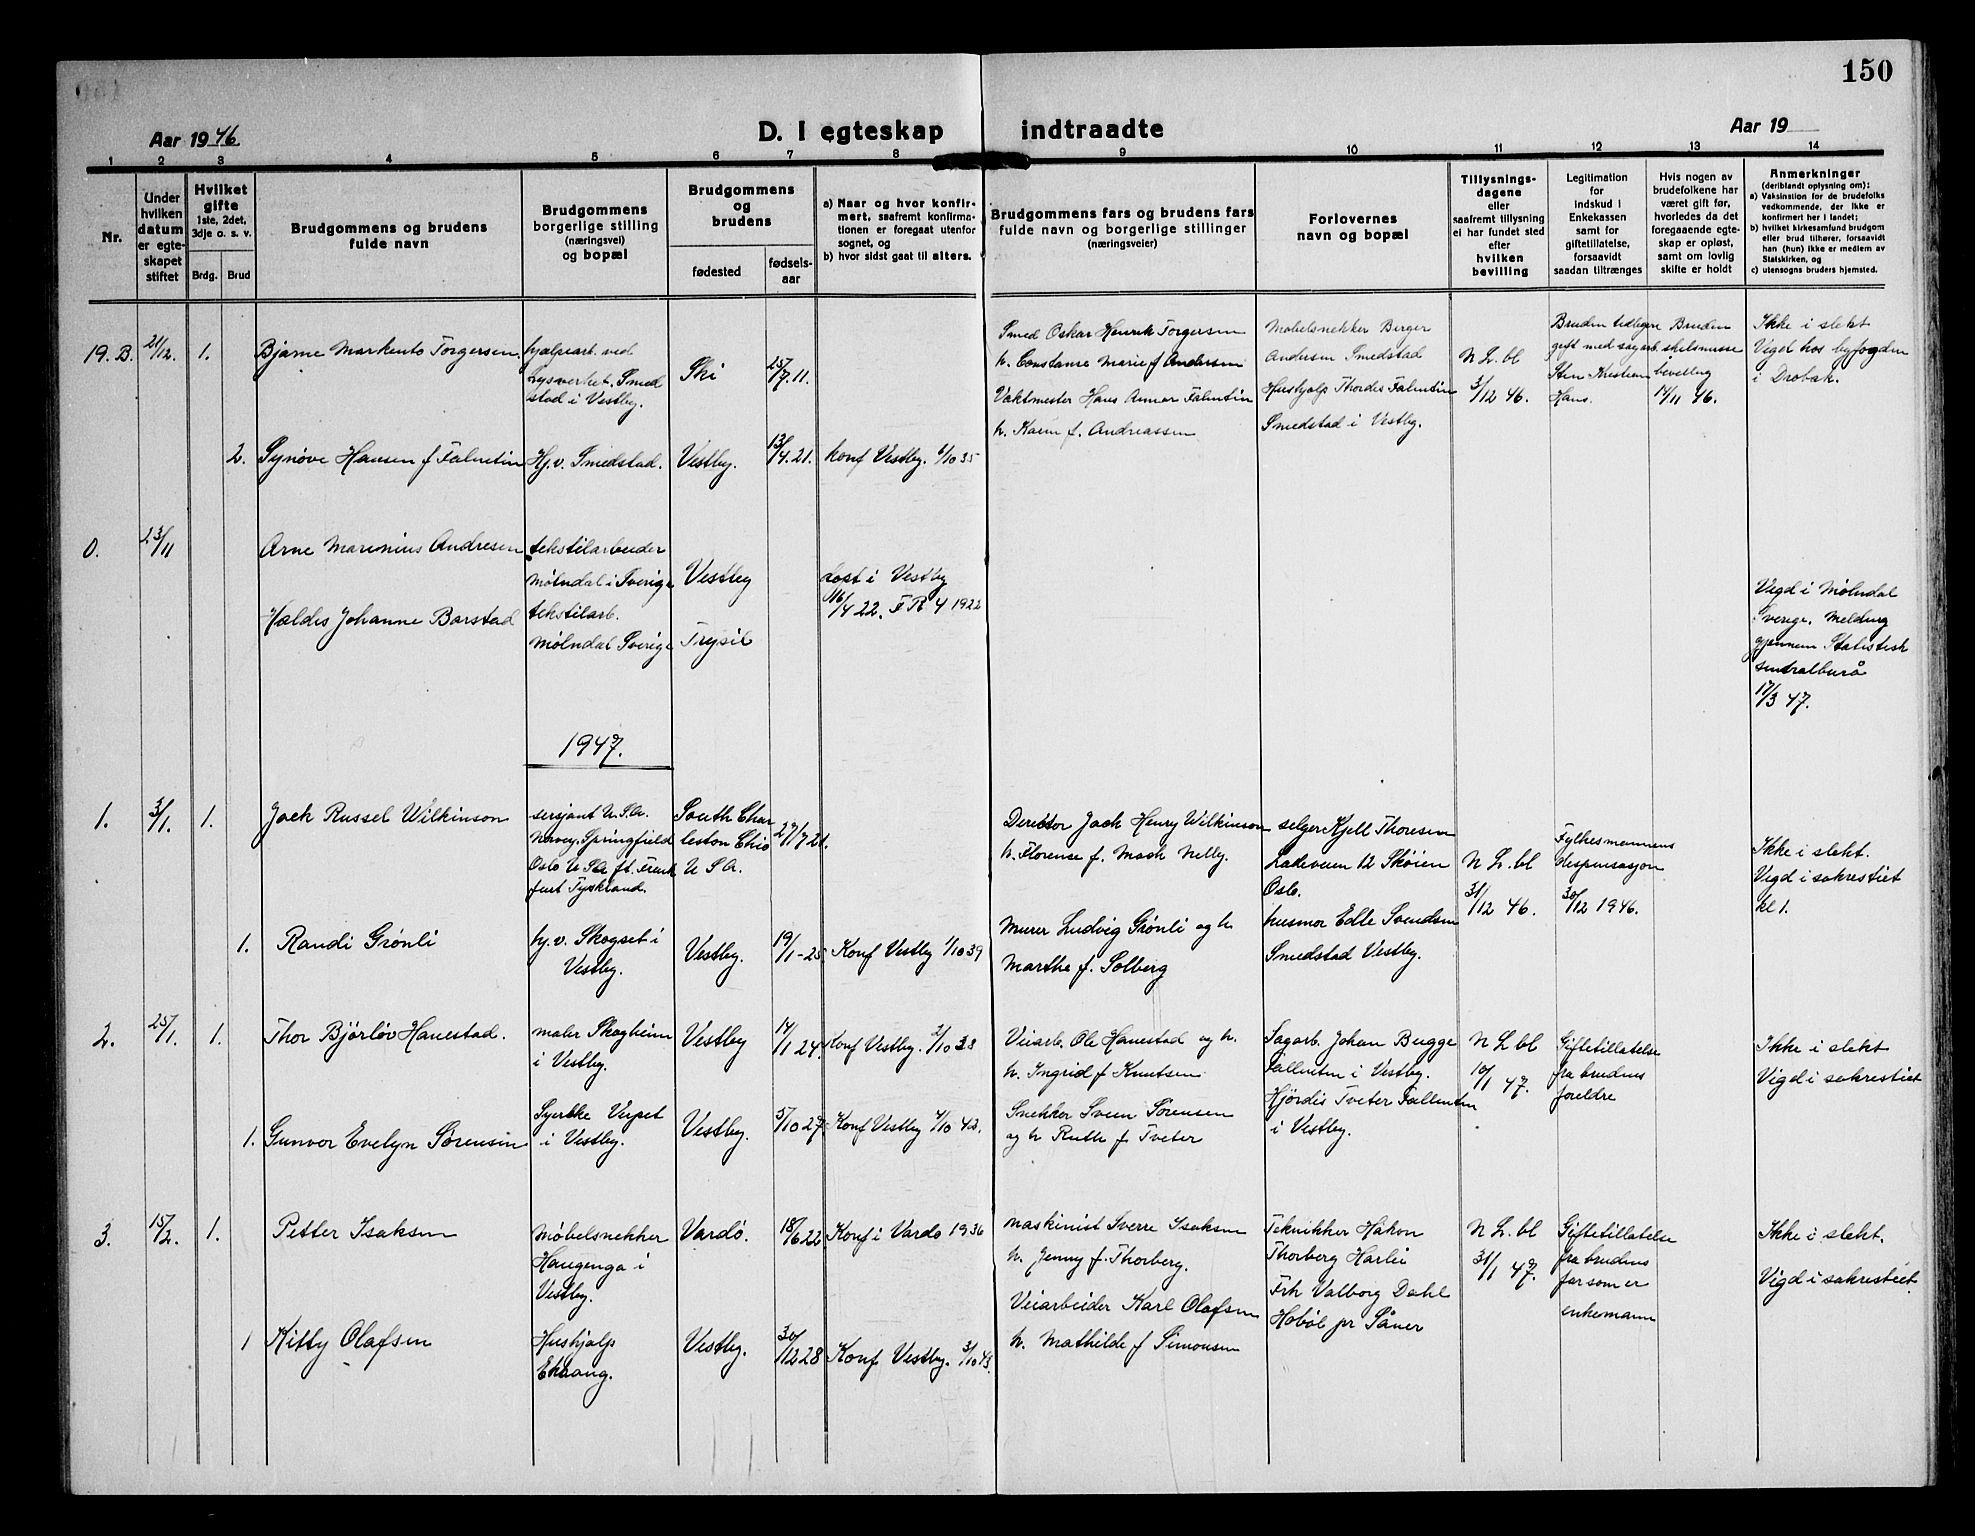 150
Aar 1946
D. I egteskap indtraadte
Aar 19
1 2 3 4 5 6 7 8 9 10 11 12 13 14
Nr.
Under
hvilken
datum
er egte-
skapet
stiftet
Hvilket
gifte
1ste, 2det,
3dje o. s. v.
Brdg. Brud
Brudgommens og brudens
fulde navn
Brudgommens
borgerlige stilling
(næringsvei)
og bopæl
Brudgommens
og
brudens
fødested
fødsels-
aar
a) Naar og hvor konfir-
mert, saafremt konfirma-
tionen er foregaat utenfor
sognet, og
b) hvor sidst gaat til alters.
Brudgommens fars og brudens fars
fulde navn og borgerlige stillinger
(næringsveier)
Forlovernes
navn og bopæl
Tillysnings-
dagene
eller
saafremt tillysning
ei har fundet sted
efter
hvilken
bevilling
Legitimation
for
indskud i
Enkekassen
samt for
giftetillatelse,
forsaavidt
saadan tiltrænges
Hvis nogen av
brudefolkene har
været gift før,
hvorledes da det
foregaaende egte-
skap er opløst,
samt om lovlig
skifte er holdt
Anmerkninger
(deriblandt oplysning om):
a) Vaksination for de brudefolks
vedkommende, der ikke er
konfirmert her i landet;
b) hvilket kirkesamfund brudgom
eller brud tilhører, forsaavidt
han (hun) ikke er medlem av
Statskirken, og
c) utensogns bruders hjemsted.
19. B. 21/12. 1.
Bjarne Markento Torgersen
hjælpearb. ved
Lysverket. Smed
stad i Vestby.
Ski
25/7. 11.
Smed Oskar Henrik Torgersen
h. Constanse Marie f Andersen
Vaktmester Hans Annar Falentin
h. Karen f. Andreassen
Møbelsnekker Berger
Andersen Smedstad
Hushjelp Thordis Falentin
Smedstad i Vestby.
N L. bl
3/12 46.
Bruden tidligere
gift med sagarb.
Sten Kristian
Hans.
Bruden
skilsmisse
bevilling
14/11 46.
Ikke i slekt
Viget hos byfogden
i Drøbak.
2. Synøve Hansen f Falentin
Hj. v. Smedstad.
Vestby.
13/4. 21.
konf Vestby. 6/10 35
0. 23/11
Arne Marinius Andresen
tekstilarbeider
Mølndal i Sverige
Vestby
døpt i Vestby
16/4 22. FR 4 1922
Haldis Johanne Barstad
tekstilarb.
Mølndal Sverige
Trysil
Vigd i Mølndal
Sverige. Melding
gjennem Statistisk
sentralburå
17/3 47.
1947.
1. 3/1. 1.
Jack Russel Wilkinson
sersjant U. S. A.
Navey. Springfield
Oslo U SA ft. Frank
furt Tyskland.
South Char
leston Ohio
U S A.
27/7 21.
Derektor Jack Henry Wilkinson
h. Florense f. Mack Nelly.
selger Kjell Thoresen
Ladeveien 12 Skøien
Oslo.
husmor Edle Svendsen
Smedstad Vestby.
N L. bl
31/12 46.
Fylkesmannens
dispensasjon
30/12 1946.
Ikke i slekt.
Vigd i sakrestiet
kl 1.
1. Randi Grønli
hj. v. Skogset i
Vestby.
Vestby.
19/1 - 25.
Konf Vestby 1/10 39
Murer Ludvig Grønli og h.
Marthe f. Solberg
2. 25/1. 1.
Thor Bjørløv Hanestad.
maler Skogheim
i Vestby.
Vestby
14/1 24.
Konf Vestby. 2/10 38
Veiarb. Ole Hanestad og h.
h. Ingrid f Knutsen
Sagarb. Johan Bugge
Fallentin i Vestby.
Hjørdis Tveter Fallentin
i Vestby.
N L bl
10/1 47.
Giftetillatelse
fra brudens
foreldre
Ikke i slekt
Vigd i sakrestiet
1. Gunvor Evelyn Sørensen
Syerske Verpet
i Vestby.
Vestby.
5/10 27
Konf Vestby 4/10 42.
Snekker Svein Sørensen
og h Ruth f. Tveter
3. 15/2. 1.
Petter Isaksen
Møbelsnekker
Haugenga i
Vestby.
Vardø.
18/6 22
Konf i Vardø 1936
Maskinist Sverre Isaksen
h. Jenny f. Thorberg.
Veiarbeider Karl Olafsen
h. Mathilde f Simonsen
Teknikker Håkon
Thorberg Harlei
Frk Valborg Dahl
Hobøl pr Såner
N L. bl
31/1 47.
Giftetillatelse
fra brudens
far som er
enkemann
Ikke i slekt.
Vigd i sakrestiet.
1 Kitty Olafsen
Hushjelp
Ekaang.
Vestby.
30/12 28
Konf Vestby. 3/10 43.